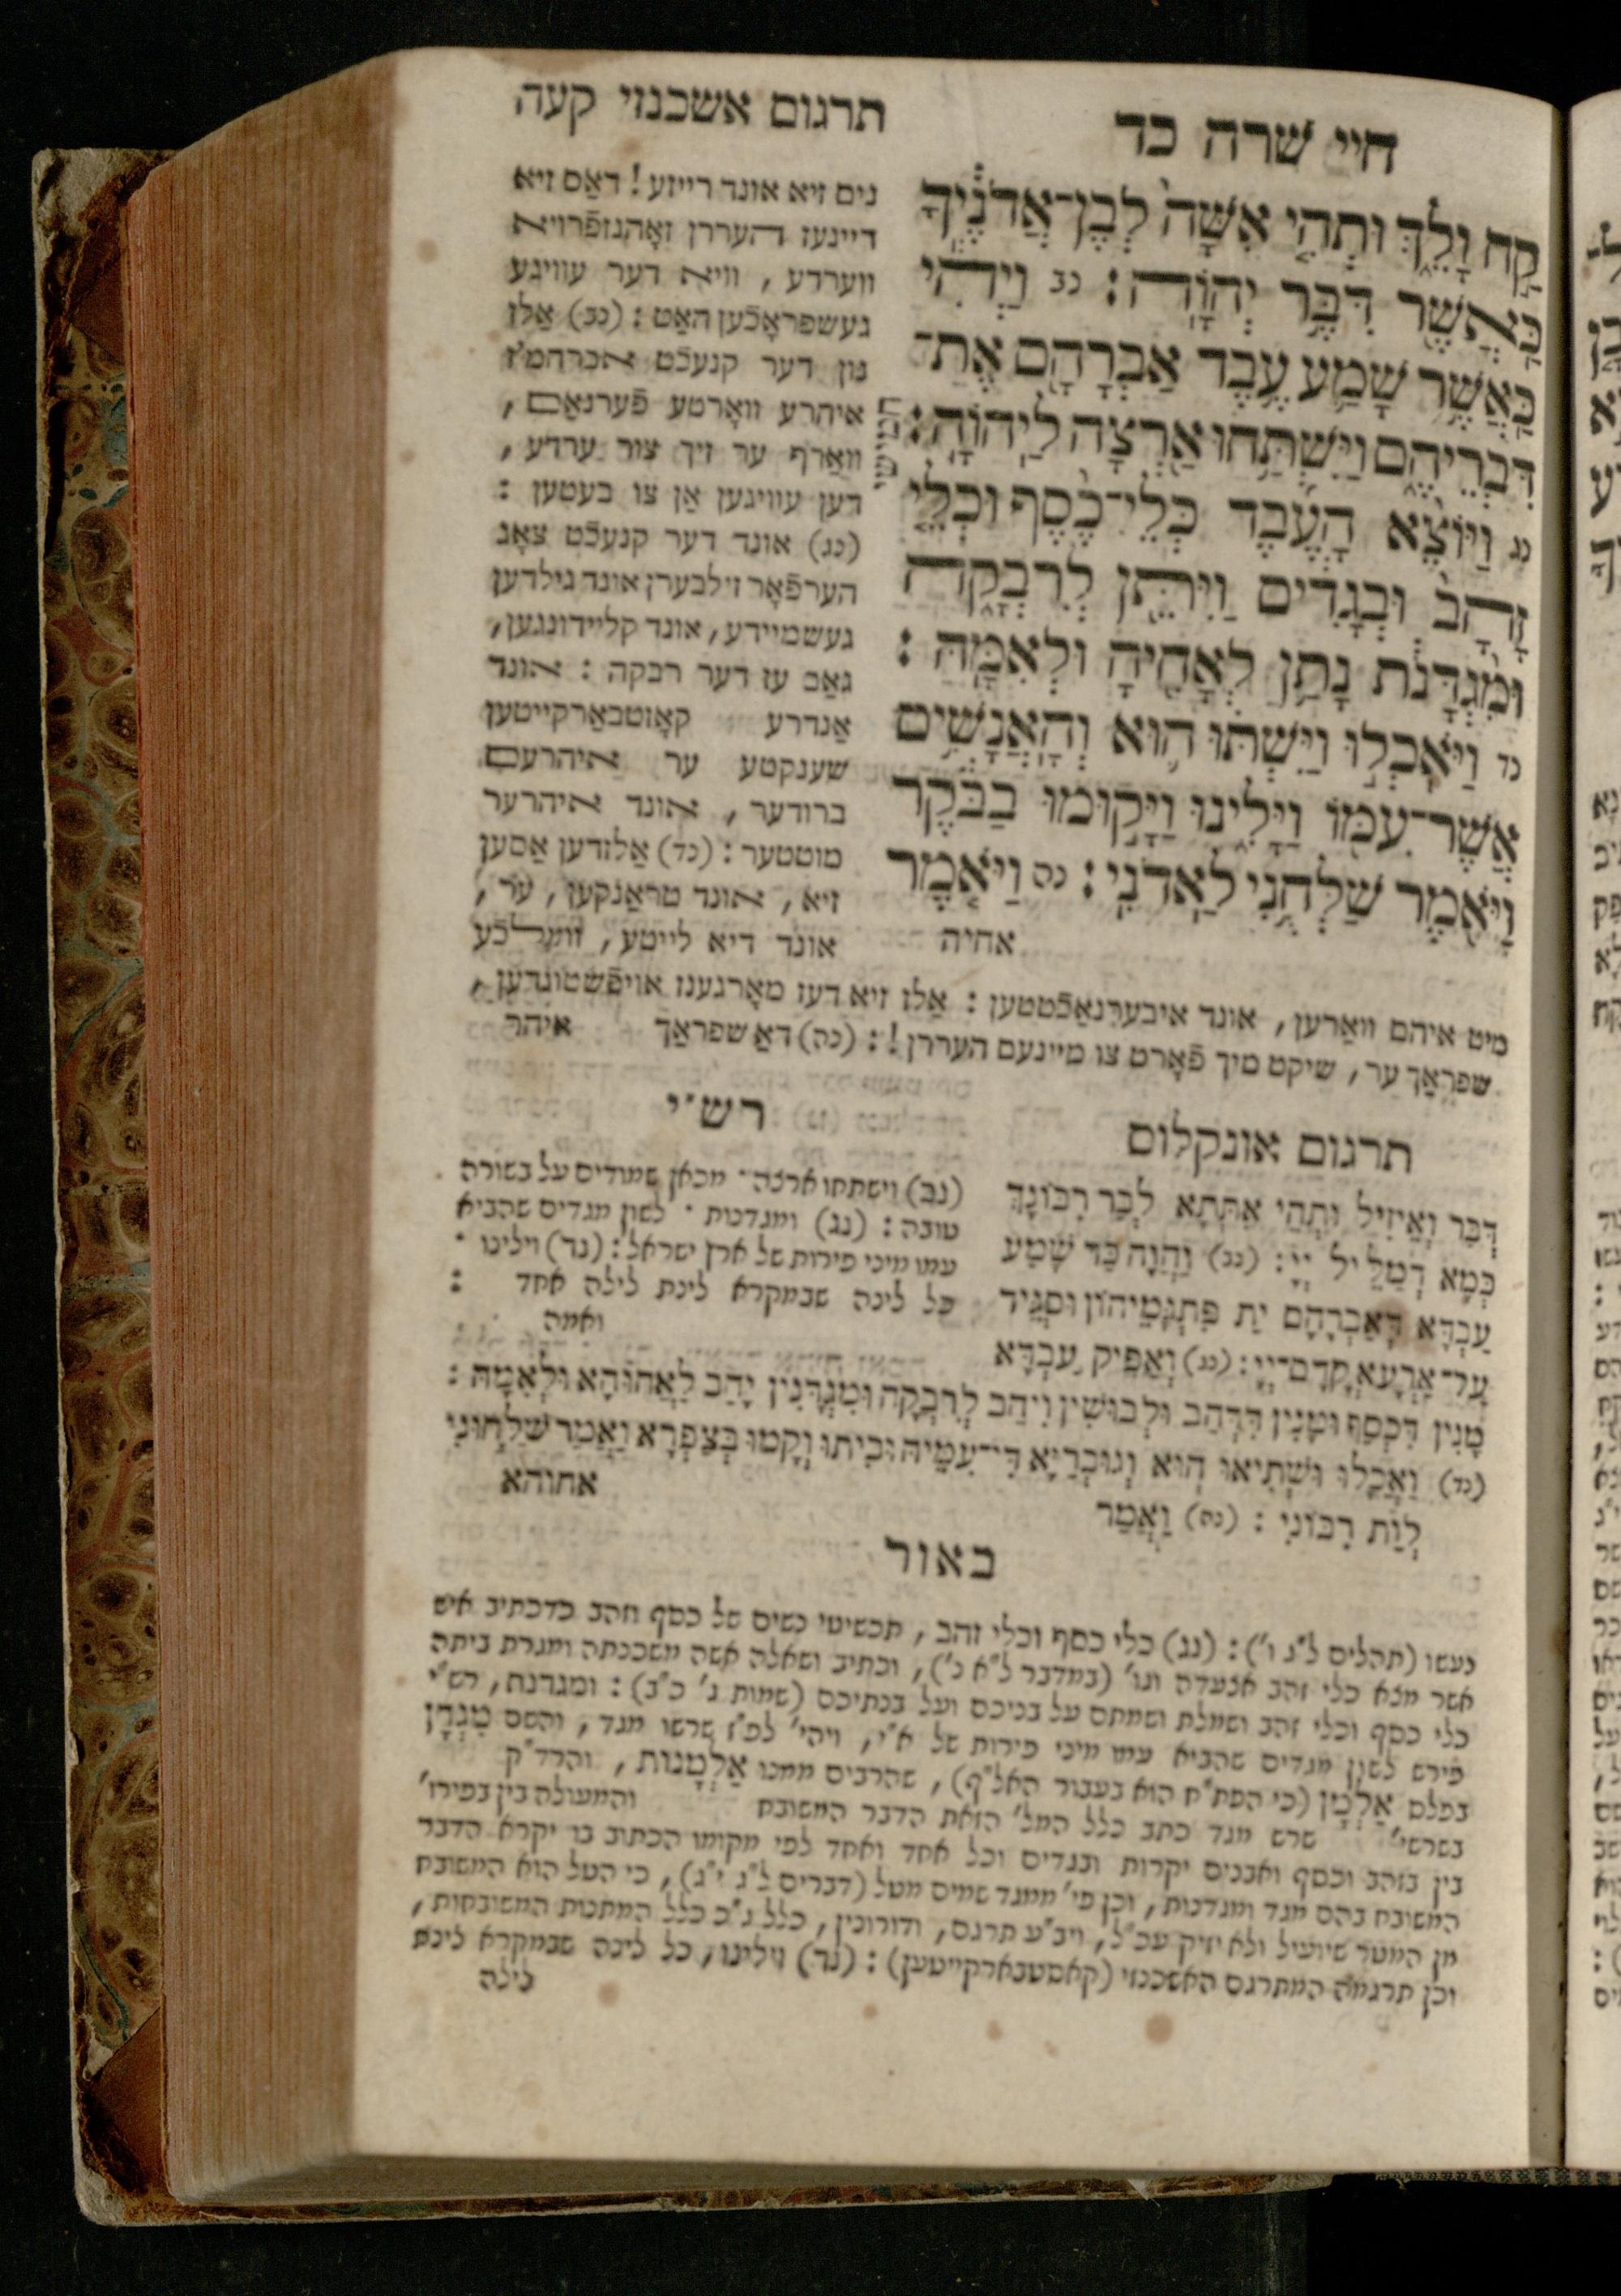 חיי שרה כד
קַח וָלֵךְ וּתְהִי אִשָּׁה לְבֶן־אֲדֹנֶיךָ
כַּאֲשֶׁר דִּבֶּר יְהוָה: נב וַיְהִי
כַּאֲשֶׁר שָׁמַע עֶבֶד אַבְרָהָם אֶת־
דִּבְרֵיהֶם וַיִּשְׁתַּחוּ אַרְצָה לַיהוָה:
חמישי
נג וַיּוֹצֵא הָעֶבֶד כְּלֵי־כֶסֶף וּכְלֵי
זָהָב וּבְגָדִים וַיִּתֵּן לְרִבְקָה
וּמִגְדָּנֹת נָתַן לְאָחִיהָ וּלְאִמָּהּ:
נד וַיֹּאכְלוּ וַיִּשְׁתּוּ הוּא וְהָאֲנָשִׁים
אֲשֶׁר־עִמּוֹ וַיָּלִינוּ וַיָּקוּמוּ בַבֹּקֶר
וַיֹּאמֶר שַׁלְּחֻנִי לַאדֹנִי: נה וַיֹּאמֶר
אחיה
תרגום אשכנזי קעה
נים זיא אונד רייזע! דאַס זיא
דיינעז העררן זאָהנזפֿרויא
ווערדע, וויא דער עוויגע
געשפראָכֿען האַט: (נב) אַלז
נון דער קנעכֿט אברהם'ז
איהרע וואָרטע פֿערנאַם,
וואַרף ער זיך צור ערדע,
דען עוויגען אַן צו בעטען:
(נג) אונד דער קנעכֿט צאָג
הערפֿאָר זילבערן אונד גילדען
געשמיידע, אונד קליידונגען,
גאַב עז דער רבקה: אונד
אַנדרע קאָזטבאַרקייטען
שענקטע ער איהרעם
ברודער, אונד איהרער
מוטטער: (נד) אַלזדען אַסען
זיא, אונד טראַנקען, ער,
אונד דיא לייטע, וועלכֿע
מיט איהם וואַרען, אונד איבערנאַכֿטטען: אַלז זיא דעז מאָרגענז אויפֿשטונדען,
שפראַך ער, שיקט מיך פֿאָרט צו מיינעם העררן!: (נה) דאַ שפראַך איהר
תרגום אונקלום
דְּבַר וְאֵיזִיל וּתְהֵי אִתְּתָא לְבַר רִבּוֹנָךְ
כְּמָא דְמַלֵּיל יְיָ: (נב) וַהֲוָה כַּד שְׁמַע
עַבְדָּא דְאַבְרָהָם יַת פִּתְגָּמֵיהוֹן וּסְגֵיד
עַל־אַרְעָא קֳדָם־יְיָ: (נג) וְאַפִּיק עַבְדָּא
מָנִין דִּכְסַף וּמָנִין דִּדְהַב וּלְבוּשִׁין וִיהַב לְרִבְקָה וּמִגְדָּנִין יְהַב לַאֲחוּהָא וּלְאִמַּהּ:
(נד) וַאֲכָלוּ וּשְׁתִיאוּ הוּא וְגוּבְרַיָּא דִּי־עִמֵּיהּ וּבִיתוּ וְקָמוּ בְצַפְרָא וַאֲמַר שַׁלְּחוּנִי
לְוַת רִבּוֹנִי: (נה) וַאֲמַר
אחוהא
רש"י
(נב) וישתחו ארצה· מכאן שמודים על בשורה
טובה: (נג) ומגדנות· לשון מגדים שהביא
עמו מיני פירות של ארץ ישראל: (נד) וילינו·
כל לינה שבמקרא לינת לילה אחד:
ואמה
באור
נעשו (תהלים ל"ג ו'): (נג) כלי כסף וכלי זהב, תכשיטי נשים של כסף וזהב כדכתיב איש
אשר מצא כלי זהב אצעדה וגו' (במדבר ל"א נ'), וכתיב ושאלה אשה משכנתה ומגרת ביתה
כלי כסף וכלי זהב ושמלת ושמתם על בניכם ועל בנתיכם (שמות ג' כ"ב): ומגדנת, רש"י
פירש לשון מגדים שהביא עמו מיני פירות של א"י, ויהי' לפ"ז שרשו מגד, והשם מִגְדָּן
בפלס אַלְמָן (כי הפת"ח הוא בעבור האל"ף), שהרבים ממנו אַלְמָנוּת, והרד"ק
בשרשי' שרש מגד כתב כלל המל' הזאת הדבר המשובח והמעולה בין בפירו'
בין בזהב וכסף ואבנים יקרות ובגדים וכל אחד ואחד לפי מקומו הכתוב בו יקרא הדבר
המשובח בהם מגד ומגדנות, וכן פי' ממגד שמים מטל (דברים ל"ג י"ג), כי הטל הוא המשובח
מן המטר שיועיל ולא יזיק עכ"ל, ויב"ע תרגם, ודורונין, כלל ג"כ כלל המתנות המשובחות,
וכן תרגמה המתרגם האשכנזי (קאסטבארקייטען): (נד) וילינו, כל לינה שבמקרא לינת
לילה